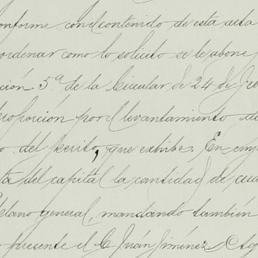 onforme con el contenido de esta acta
ordenar como lo solicito se le abone
ción 5ª de la Circular de 24 de
proporción por el levantamiento de
o del perito, que exhibe. En
ta del capital la cantidad de
Plano general, mandando también
o presente el C. Juán Jiménez